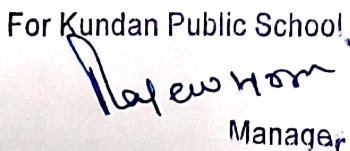 For Kundan Public School
Manager